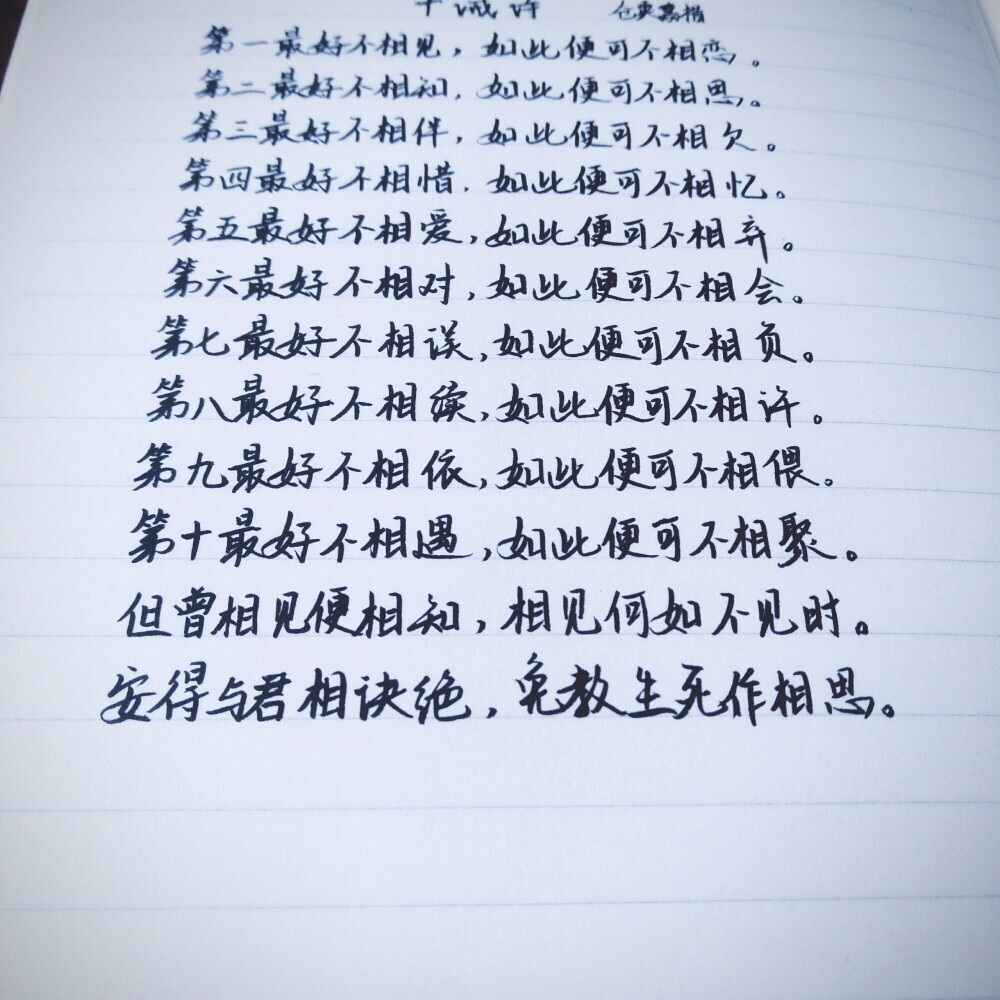 十诫诗 仓央嘉措
第一最好不相见，如此便可不相恋。
第二最好不相知，如此便可不相思。
第三最好不相伴，如此便可不相欠。
第四最好不相惜，如此便可不相忆。
第五最好不相爱，如此便可不相弃。
第六最好不相对，如此便可不相会。
第七最好不相误，如此便可不相负。
第八最好不相续，如此便可不相许。
第九最好不相依，如此便可不相偎。
第十最好不相遇，如此便可不相聚。
但曾相见便相知，相见何如不见时。
安得与君相诀绝，免教生死作相思。